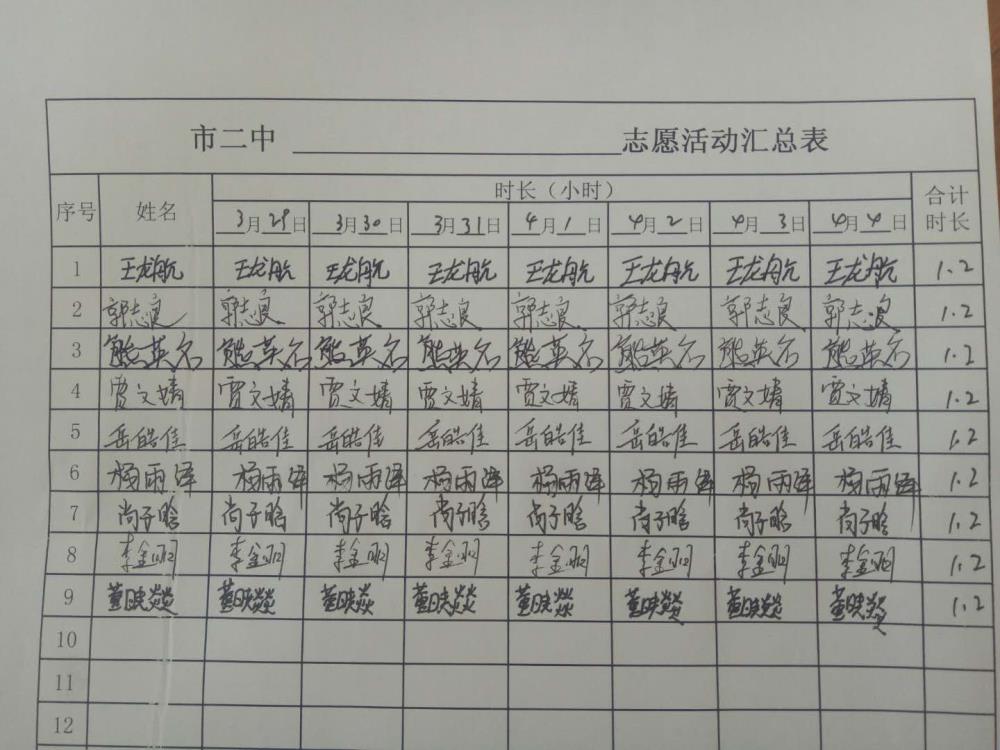 市二中 ____________ 志愿活动汇总表
序号 姓名 时长（小时） 合计时长
3月29日 3月30日 3月31日 4月1日 4月2日 4月3日 4月4日
1 王龙航 王龙航 王龙航 王龙航 王龙航 王龙航 王龙航 王龙航 1.2
2 郭志良 郭志良 郭志良 郭志良 郭志良 郭志良 郭志良 郭志良 1.2
3 熊英尔 熊英尔 熊英尔 熊英尔 熊英尔 熊英尔 熊英尔 熊英尔 1.2
4 贾文婧 贾文婧 贾文婧 贾文婧 贾文婧 贾文婧 贾文婧 贾文婧 1.2
5 岳皓佳 岳皓佳 岳皓佳 岳皓佳 岳皓佳 岳皓佳 岳皓佳 岳皓佳 1.2
6 杨雨泽 杨雨泽 杨雨泽 杨雨泽 杨雨泽 杨雨泽 杨雨泽 杨雨泽 1.2
7 尚子晗 尚子晗 尚子晗 尚子晗 尚子晗 尚子晗 尚子晗 尚子晗 1.2
8 1.2
9 董映燚 董映燚 董映燚 董映燚 董映燚 董映燚 董映燚 董映燚 1.2
10
11
12